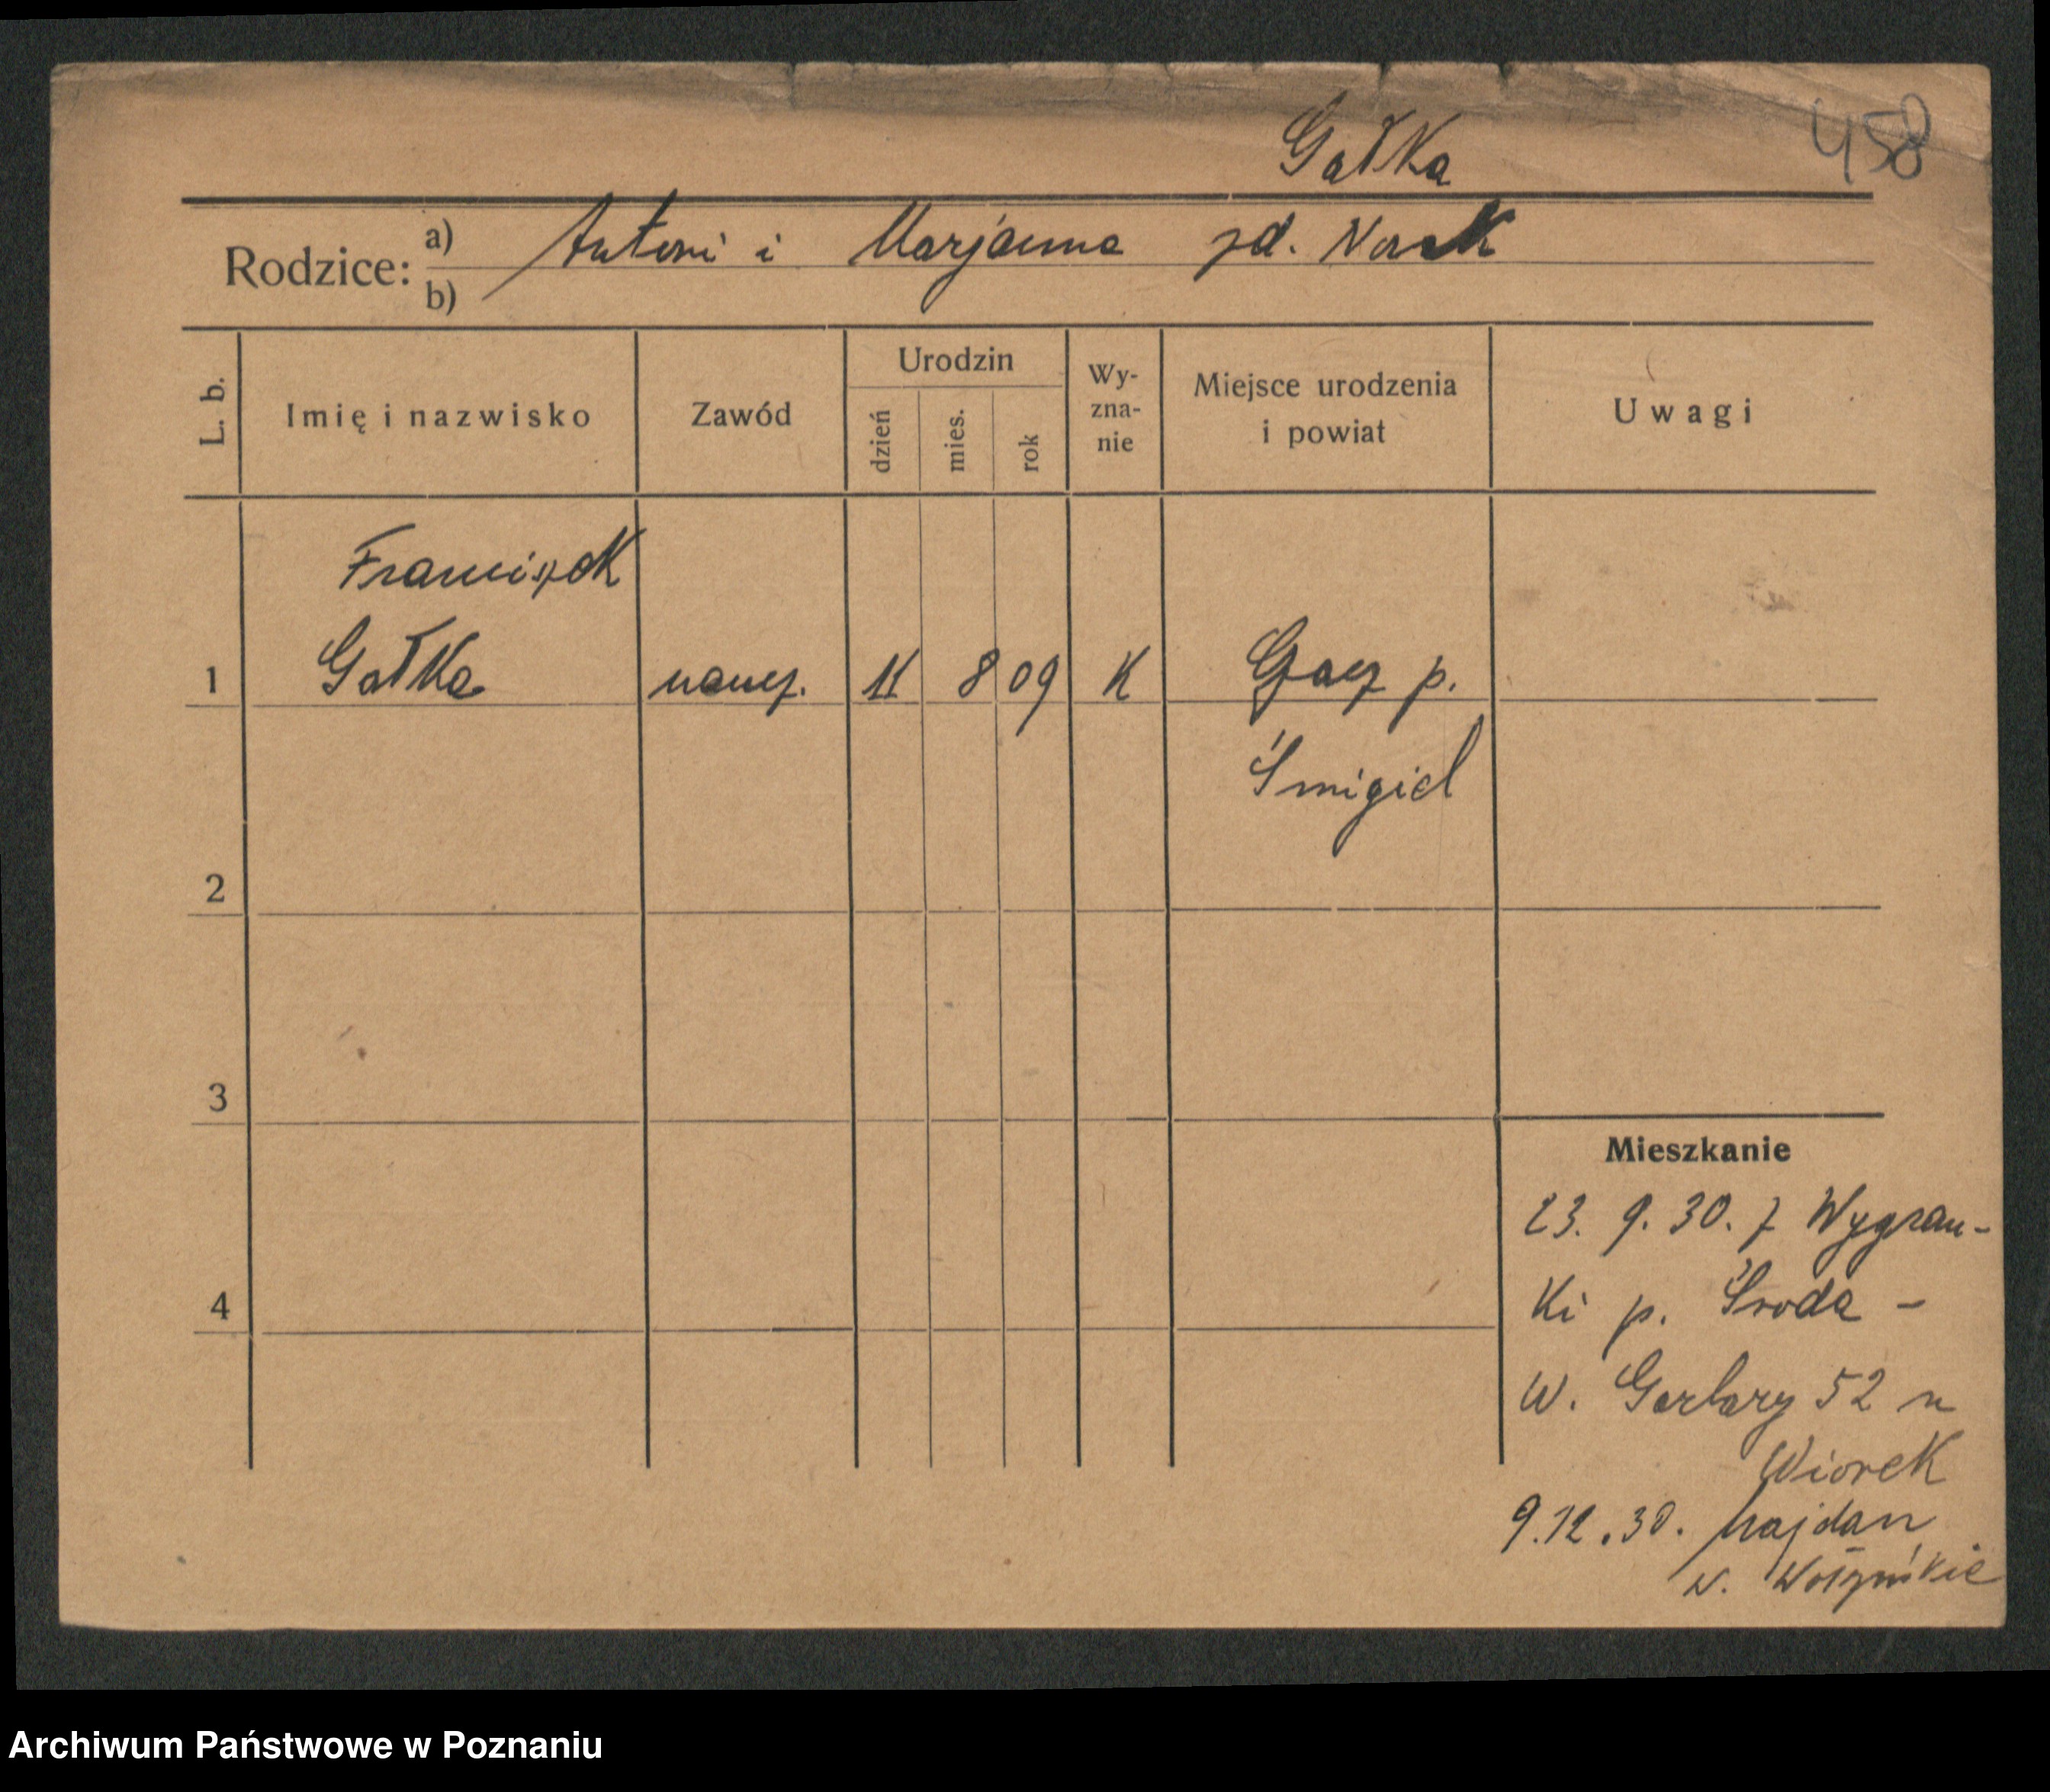 Gałka 458
Rodzice: a) b) Antoni i Marjanna zd. Norek
L. b. Imię i nazwisko Zawód Urodzin dzień mies. rok Wy-zna-nie Miejsce urodzenia i powiat Uwagi
Franciszek
1 Gałka naucz. 11 8 09 K Gacz p.
Śmigiel
2
3
Mieszkanie
23. 9. 30. z Wygran-
4 ki p. Środa -
W. Garbary 52 u
Wiorek
9.12.30. Majdan
w. Wołyńskie
Archiwum Państwowe w Poznaniu